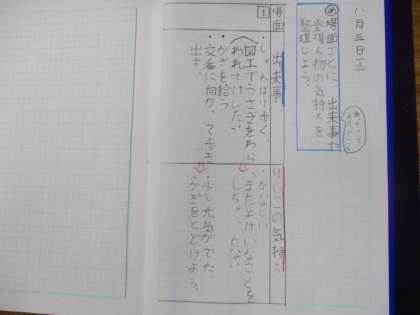 八月五日(土)
め 場面ごとに、出来事や
登場人物の気持ちを
整理しよう。
あったこと
場面
出来事
りいこの気持ち
1
・しょんぼり歩く。
(図工でうさぎをわら
われてけしたい)
・かさを拾う
・交番に向かって
出す。
かなしい
またよけいなことを
しちゃったな。
・少し元気がでた。
・かさをとどけよう。